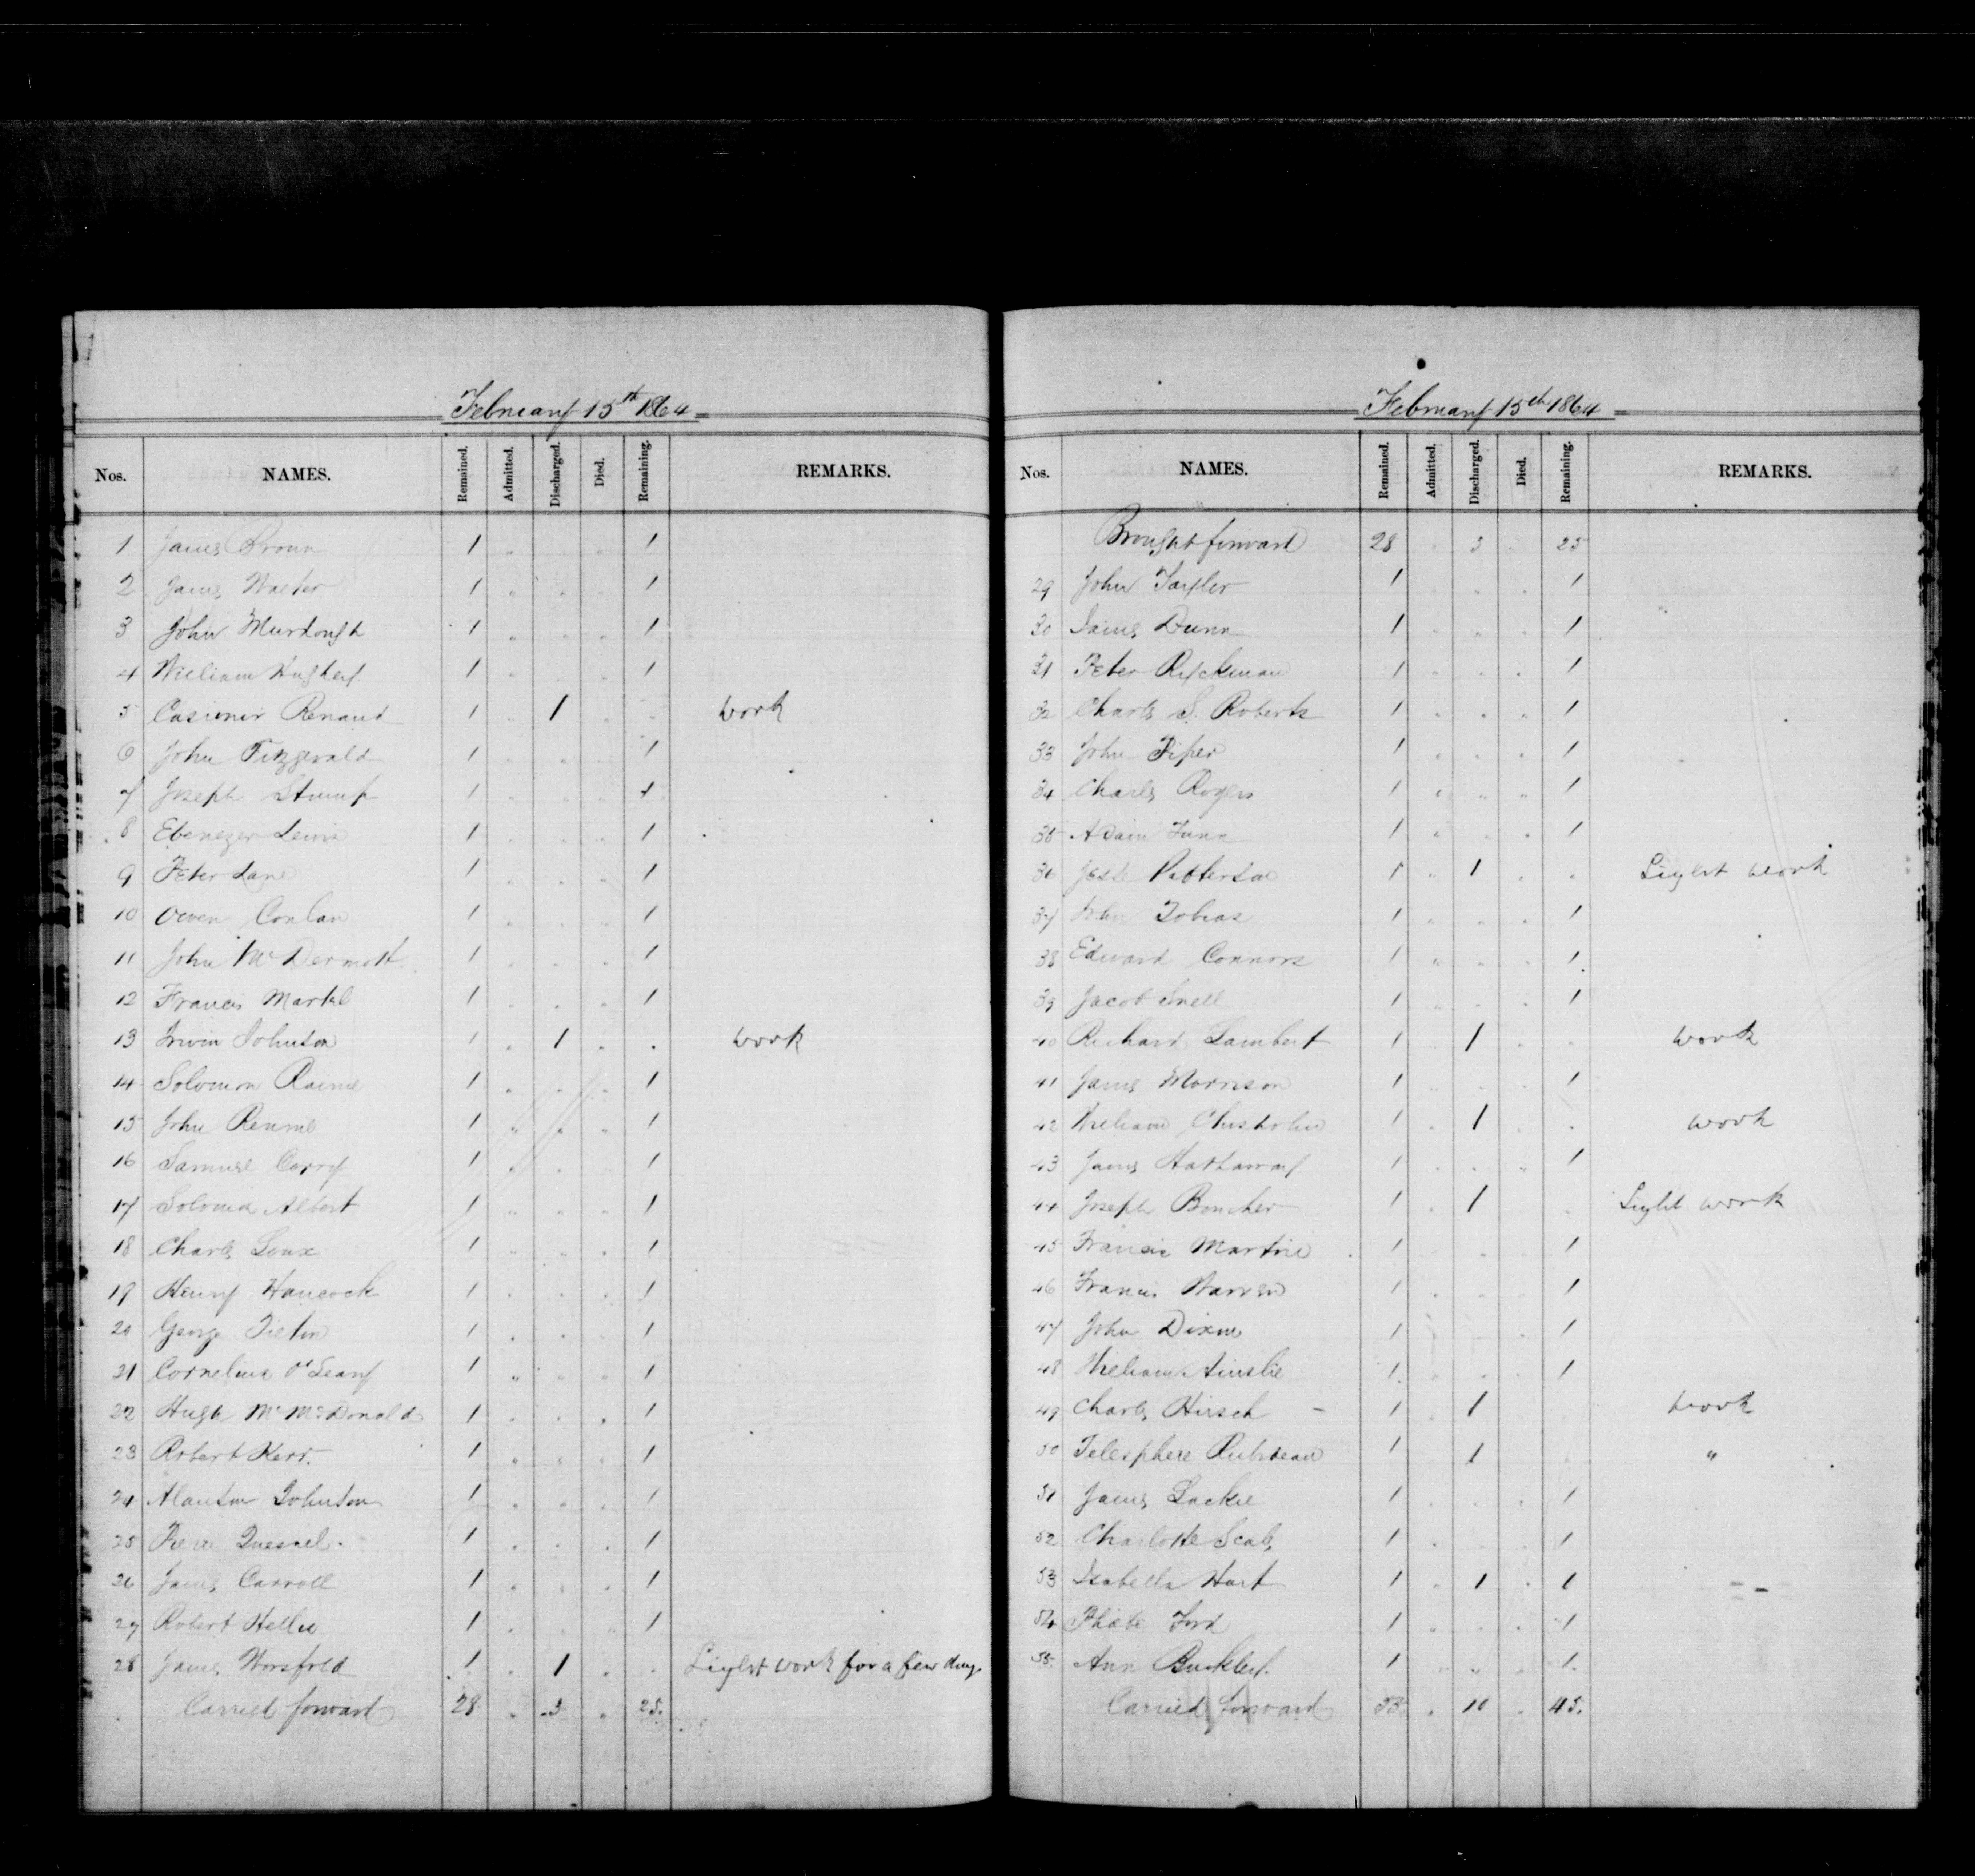 February 15th 1864
Nos. NAMES. Remained. Admitted. Discharged. Died. Remaining. REMARKS.
1 James Brown 1 " " " 1
2 James Walter 1 " " " 1
3 John Murdough 1 " " " 1
4 William Hughes 1 " " " 1
5 Casimir Renaud 1 " 1 " " work
6 John Fitzgerald 1 " " " 1
7 Joseph Stump 1 " " " 1
8 Ebenezer Lewis 1 " " " 1
9 Peter Lane 1 " " " 1
10 Owen Conlan 1 " " " 1
11 John McDermott 1 " " " 1
12 Francis Martel 1 " " " 1
13 Irwin Johnston 1 " 1 " " work
14 Solomon Raine 1 " " " 1
15 John Rennie 1 " " " 1
16 Samuel Corry 1 " " " 1
17 Solomon Albert 1 " " " 1
18 Charles Loux 1 " " " 1
19 Henry Hancock 1 " " " 1
20 George 1 " " " 1
21 Cornelius O'Leary 1 " " " 1
22 Hugh Mc McDonald 1 " " " 1
23 Robert Kerr. 1 " " " 1
24 Alanson Johnston 1 " " " 1
25 Piere Quesnel. 1 " " " 1
26 James Carroll 1 " " " 1
27 Robert 1 " " " 1
28 James Worsfold 1 " 1 " " Light work for a few days
Carried forward 28 " 3 " 25.
February 15th 1864
Nos. NAMES. Remained. Admitted. Discharged. Died. Remaining. REMARKS.
Brought forward 28 " 3 " 25
29 John Tayler 1 " " " 1
30 James Dunn 1 " " " 1
31 Peter Ryckman 1 " " " 1
32 Charles S. Roberts 1 " " " 1
33 John Piper 1 " " " 1
34 Charles Rogers 1 " " " 1
35 Adam 1 " " " 1
36 Jesse Patterson 1 " 1 " " Light work
37 John Tobias 1 " " " 1
38 Edward Connors 1 " " " 1
39 Jacob Snell 1 " " " 1
40 Richard Lambert 1 " 1 " " work
41 James Morrison 1 " " " 1
42 William Chisholm 1 " 1 " " work
43 James Hathaway 1 " " " 1
44 Joseph Boucher 1 " 1 " " Light work
45 Francis Martine 1 " " " 1
46 Francis Warren 1 " " " 1
47 John Dixon 1 " " " 1
48 William Ainslie 1 " " " 1
49 Charles Hirsch - 1 " 1 work
50 Telesphere Rubideau 1 1 "
51 James Lackie 1 " " " 1
52 Charlotte Scales 1 " " " 1
53 Isabella Hart 1 " 1 " 1 - -
54 Phœbe Ford 1 " " " 1
55. Ann Buckley. 1 " " " 1.
Carried forward 55. " 10 " 45.